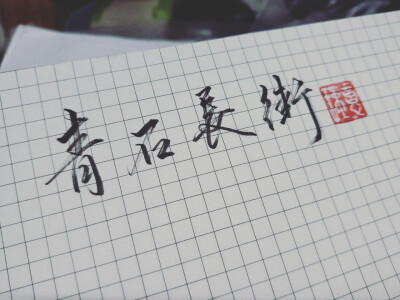 青石長街